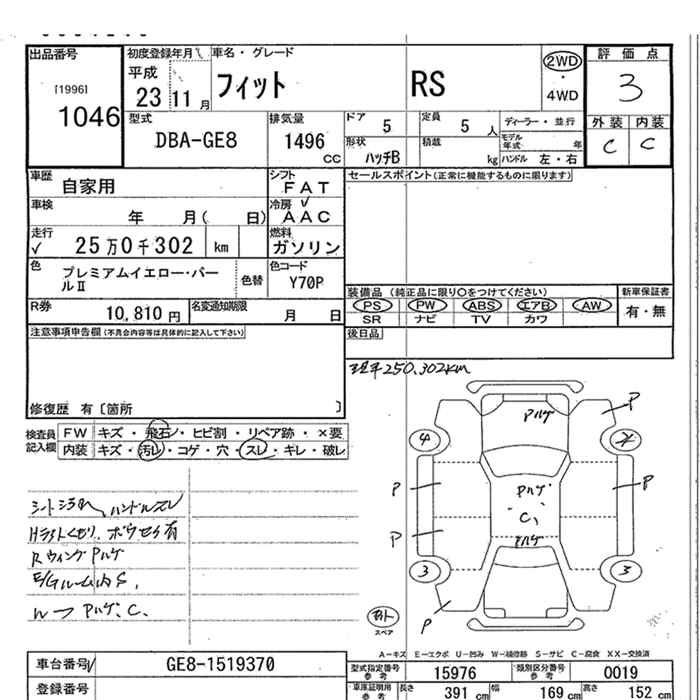 出品番号
[1996]
1046
初度登録年月
平成
23 11 月
車名・グレード
フィット RS
2WD
・
4WD
評価点
3
外装 内装
C C
型式
DBA-GE8
排気量
1496
CC
ドア
5
定員
5 人
ディーラー・並行
形状
ハッチB
積載
kg
モデル年式 年
ハンドル 左・右
車歴
自家用
シフト
FAT
セールスポイント(正常に機能するものに限ります)
車検
年 月( 日)
冷房 ✓
AAC
走行
✓ 25万0千302 km
燃料
ガソリン
色
プレミアムイエロー・パールⅡ
色替
色コード
Y70P
装備品 (純正品に限り○をつけてください)
PS PW ABS エアB AW
SR ナビ TV カワ
新車保証書
有・無
R券
10,810 円
名変通知期限
月 日
後日品
注意事項申告欄(不具合内容等は具体的に記入して下さい)
修復歴 有〔箇所 〕
250,302km
検査員記入欄
FW キズ・飛石・ヒビ割・リペア跡・×要
内装 キズ・汚レ・コゲ・穴・スレ・キレ・破レ
ハンドルスレ
Rウィングハゲ
E/Gルーム内S,
P
P
P
P
P
P
4
3
3
C,
スペア
A-キズ E-エクボ U-凹み W-補修跡 S-サビ C-腐食 XX-交換済
車台番号
GE8-1519370
型式指定番号
参考
15976
類別区分番号
参考
0019
登録番号
車庫証明用
参考
長さ
391 cm
幅
169 cm
高さ
152 cm